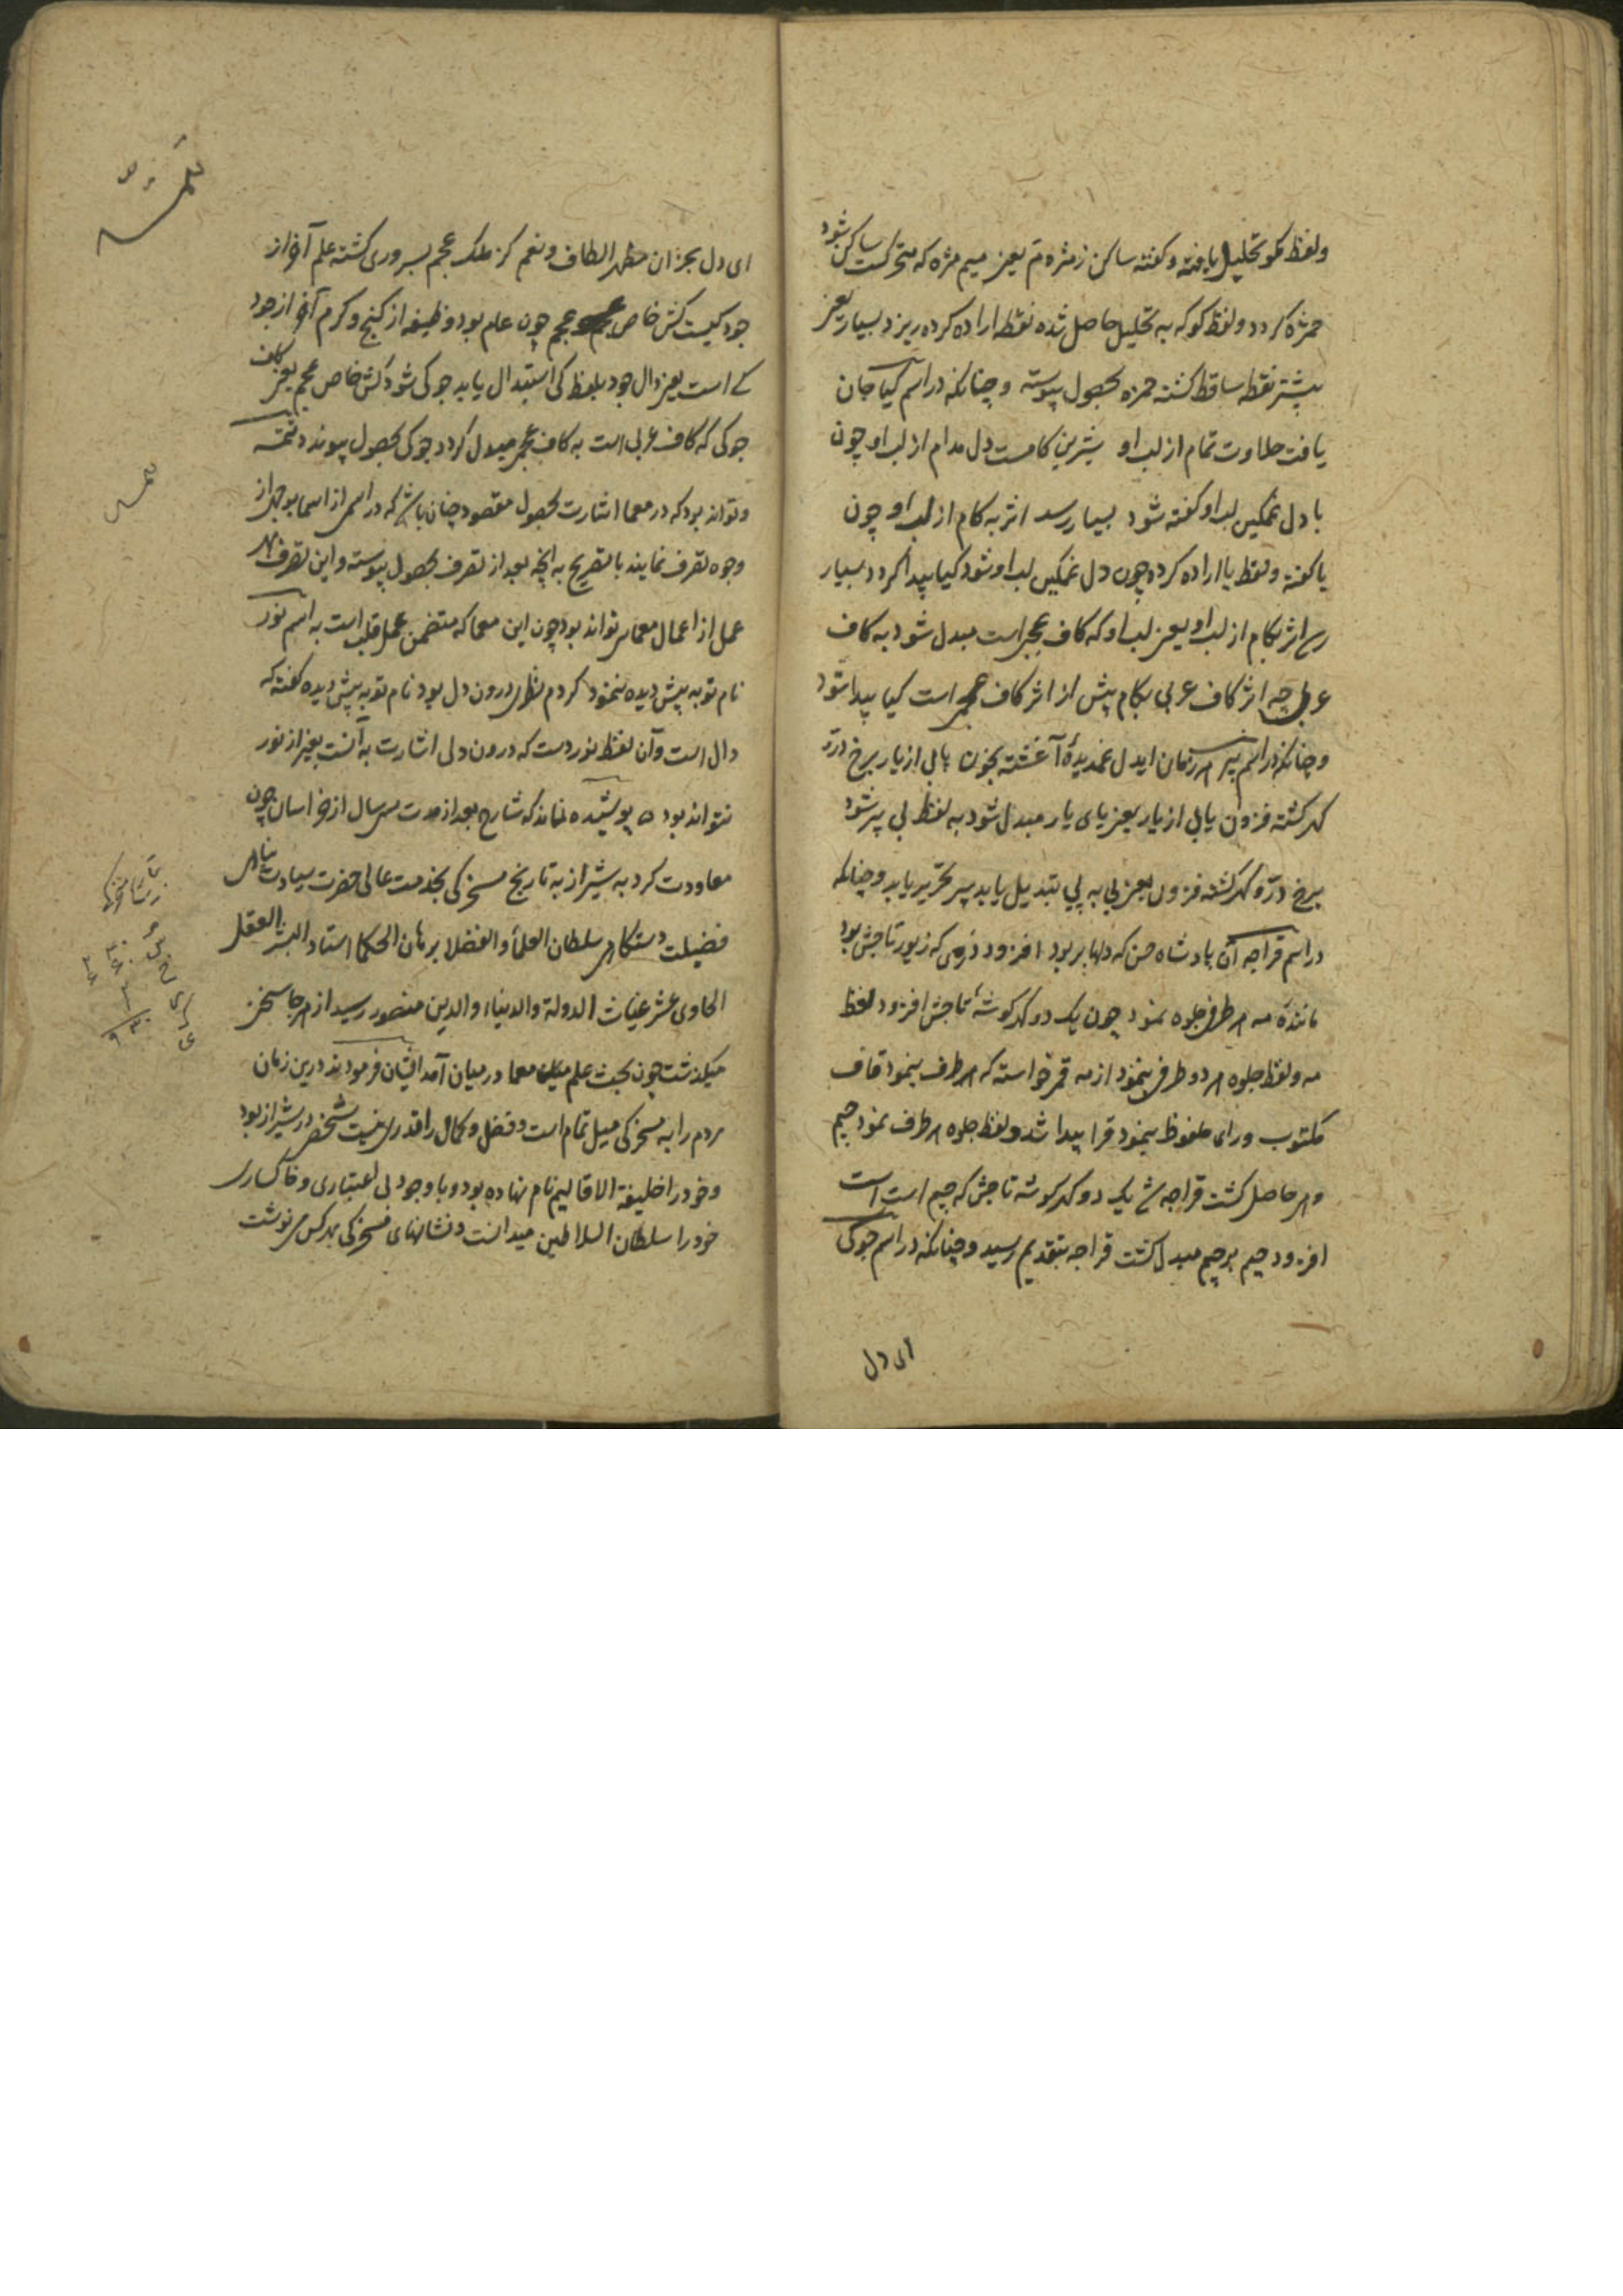 ولفظ مکو تحلیل یافته و کفته ساکن ز مژه م یعنی میم مژه که متحرکست ساکن شود
حمزه کردد و لفظ کو که به تحلیل حاصل شده نقطه اراده کرده ریزد بسیار یعنی
بیشتر نقطه ساقط کشته حمزه بحصول پیوسته و چنانکه در اسم کیا جان
یافت حلاوت تمام از لب او شیرین کامست دل مدام از لب او چون
با دل غمکین لب او کفته شود بسیار رسد اثر به کام از لب او چون
یا کفته و لفظ یا اراده کرده چون دل غمکین لب او شود کیا پیدا کردد بسیار
رسد اثر بکام از لب او یعنی لب او که کاف عجمی است مبدل شود به کاف
عربی چه اثر کاف عربی بکام پیش از اثر کاف عجمی است کیا پیدا شود
و چنانکه در اسم پیر هر زمان ایدل غمدیدهٔ آغشته بخون یابی از یار برخ درّ
کهر کشته فزون یابی از یار یعنی یای یار مبدل شود به لفظ بی پیر شود
برخ درّ و کهر کشته فزون یعنی بی به پی تبدیل یابد پیر تحریر یابد و چنانکه
در اسم قراجه آن پادشاه حسن که دلها بربود افزود ز می که زیور تاجش بود
مانندهٔ مه هر طرفی جلوه نمود چون یک دو کهر کوشهٔ تاجش افزود لفظ
مه و لفظ جلوه هر دو طرفی بنمود از مه قمر خواسته که هر طرف بنمود قاف
مکتوب و رای ملفوظ بنمود قرا پیدا شد و لفظ جلوه هر طرف نمود جیم
و هر حاصل کشت قراجه ش یک دو کهر کوشه تاجش که جیم است است
افزود جیم بر چیم مبدل کشت قراجه بتقدیم رسید و چنانکه در اسم جوکی
ای دل
ای دل بجز ان مظهر الطاف و نعم کز ملک عجم بسروری کشته علم آفر از
جود کیست کش خاص عجم چون عام بود وظیفه از کنج و کرم آفر از جود
کی است یعنی دال جود بلفظ کی استبدال یابد جوکی شود کش خاص عجم یعنی کاف
جوکی که کاف عربی است به کاف عجمی مبدل کردد جوکی بحصول پیوندد تتمه
و تواند بود که در معما اشارت بحصول مقصود چنان باشد که در اسمی از اسما بوجهی از
وجوه تصرف نمایند با تصریح به آنچه بعد از تصرف بحصول پیوسته و این تصرف بهر
عمل از اعمال معمایی تواند بود چون این معما که متضمن عمل قلب است به اسم نور
نام تو به پیش دیده ننمود کردم نظری درون دل بود نام تو به پیش دیده کفته که
دال است و آن لفظ نور دست که درون دلی اشارت به آنست بغیر از نور
نتواند بود ه پوشیده نماند که شارح بعد از مدت سی سال از خراسان چون
معاودت کرد به شیراز به تاریخ مسخرکی بخدمت عالی حضرت سیادت پناهی
فضیلت دستکاهی سلطان العلما و الفضلا برهان الحکما استاد البشر العقل
الحادی عشر غیاث الدولة والدنیا والدین منصور رسید از هر جا سخنی
میکذشت چون بحث علم معما در میان آمد ایشان فرمودند درین زمان
مردم را به مسخرکی میل تمام است و فضل و کمال را قدری نیست شخصی در شیراز بود
و خود را خلیفة الاقالیم نام نهاده بود و با وجود بی اعتباری و خاکساری
خود را سلطان السلاطین میدانست و نشانهای مسخرکی بهر کس می نوشت